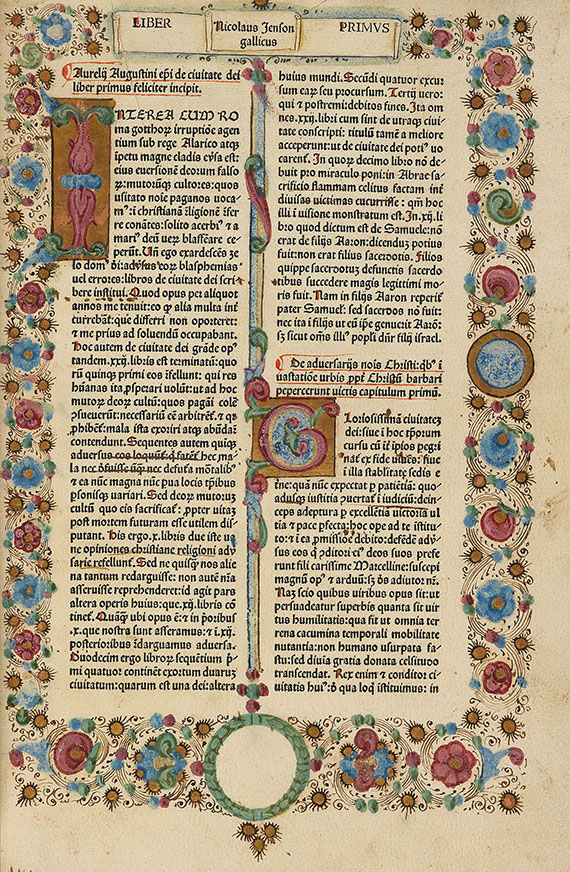 LIBER
Nicolaus Jenson
gallicus
PRIMVS
Aurelij Augustini epi de ciuitate dei
liber primus feliciter incipit.
INTEREA CUM RO
ma gotthoꝝ irruptiõe agen
tium sub rege Alarico atqꝫ
ipetu magne cladis eṽsa est:
eius euersionẽ deorum falso
ꝝ:mutoꝝqꝫ cultores:quos
usitato noie paganos uoca-
mꝰ:ĩ christianã religionẽ refer
re conãtes:solito acerbiꝰ ⁊ a
mariꝰ deũ veꝝ blasfẽare ce-
perũt. Un ego exardescẽs ze
lo domꝰ dei: adṽsus eoꝝ blasphemias
uel errores:libros de ciuitate dei scri
bere institui. Quod opus per aliquot
annos me tenuit:eo ꝙ alia multa int̃
currebãt:que differri non oporteret:
⁊ me prius ad soluendũ occupabant.
Hoc autem de ciuitate dei grãde opꝰ
tandem .xxij. libris est terminatũ:quo
rũ quinqꝫ primi eos refellunt: qui res
hũanas ita ꝓsperari uolũt: ut ad hoc
mutoꝝ deoꝝ cultũ: quos pagãi colẽ
ꝓsueuerũt:necessariũ eẽ arbitrẽt̃: ⁊ qꝛ
ꝓhibet̃:mala ista exoriri atqꝫ abũdar̃
contendunt. Sequentes autem quiqꝫ
aduersus eos loquũt̃: q̃ fatẽt̃ hec mã
la nec defuisse ũqꝫ nec defut̃a mõtalibꝰ
⁊ ea nũc magna nũc pua locis tp̃ibus
ꝑsonisqꝫ uariari. Sed deoꝝ mutoꝝ
cultũ quo eis sacrificat̃: ꝓpter uitaꝫ
post mortem futuram esse utilem dis
putant. His ergo .x. libris due iste ua
ne opiniones christiane religioni adṽ
sarie refellunt. Sed ne quisqꝫ nos alie
na tantum redarguisse: non autẽ nr̃a
asseruisse reprehenderet:id agit pars
altera operis huius:que .xij. libris cõ
tinet̃. Quãqꝫ ubi opus ẽ:⁊ in ṗoribus
.x. que nostra sunt asseramus:⁊ ĩ .xij.
posterioribus redarguamus aduersa.
Duodecim ergo libroꝝ sequẽtium p̃
mi quatuor continẽt exortum duaruꝫ
ciuitatum:quarum est una dei:altera
huius mundi. Secũdi quatuor excur
sum eaꝝ seu procursum. Tertij vero:
qui ⁊ postremi:debitos fines. Ita om
nes .xxij. libri cum sint de utraqꝫ ciui
tate conscripti: titulũ tamẽ a meliore
acceperunt:ut de ciuitate dei potiꝰ uo
carent̃. In quoꝝ decimo libro nõ de-
buit pro miraculo poni:in Abrae sa-
crificio flammam celitus factam int̃
diuisas victimas cucurrisse: qm̃ hoc
illi ĩ uisione monstratum est. In .xij. li
bro quod dictum est de Samuele:nõ
erat de filijs Aaron:dicenduꝫ potius
fuit:non erat filius sacerdotis. Filios
quippe sacerdotuꝫ defunctis sacerdo
tibus succedere magis legittimi mo-
ris fuit. Nam in filijs Aaron reperit̃
pater Samuel: sed sacerdos nõ fuit:
nec ita ĩ filijs ut eũ ipe genuerit Aarõ:
sꝫ sicut oẽs illiꝰ popli dñr filij israel.
De aduersarijs nois Christi:qbꝰ ĩ
uastatiõe urbis ꝓpt̃ Christũ barbari
pepercerunt victis capitulum primũ.
Gloriosissimã ciuitatem
dei:siue ĩ hoc tp̃orum
cursu cũ ĩter ipios peregri
nat̃ ex fide uiuẽs: siue
ĩ illa stabilitate sedis e
tne:quã nũc expectat ꝑ patiẽtiã: quo
adusqꝫ iustitia ꝯuertat̃ ĩ iudiciũ:dein
ceps adeptura ꝑ excellẽtiã uictoria ul
tia ⁊ pace ꝑfecta:hoc ope ad te istitu
to:⁊ ĩ ea ꝓmissiõe debito:defẽdẽ adṽ
sus eos q̃ ꝯditori eiꝰ deos suos prefe
runt fili carissime Marcelline:suscepi
magnũ opꝰ ⁊ arduũ:sꝫ deꝰ adiutor nr̃.
Naꝫ scio quibus viribus opus sit:ut
persuadeatur superbis quanta sit uir
tus humilitatis:qua fit ut omnia ter
rena cacumina temporali mobilitate
nutantia:non humano usurpata fa-
stu:sed diuina gratia donata celsitudo
transcendat. Rex enim ⁊ conditor ci-
uitatis huiꝰ: de qua loqui istituimus: in